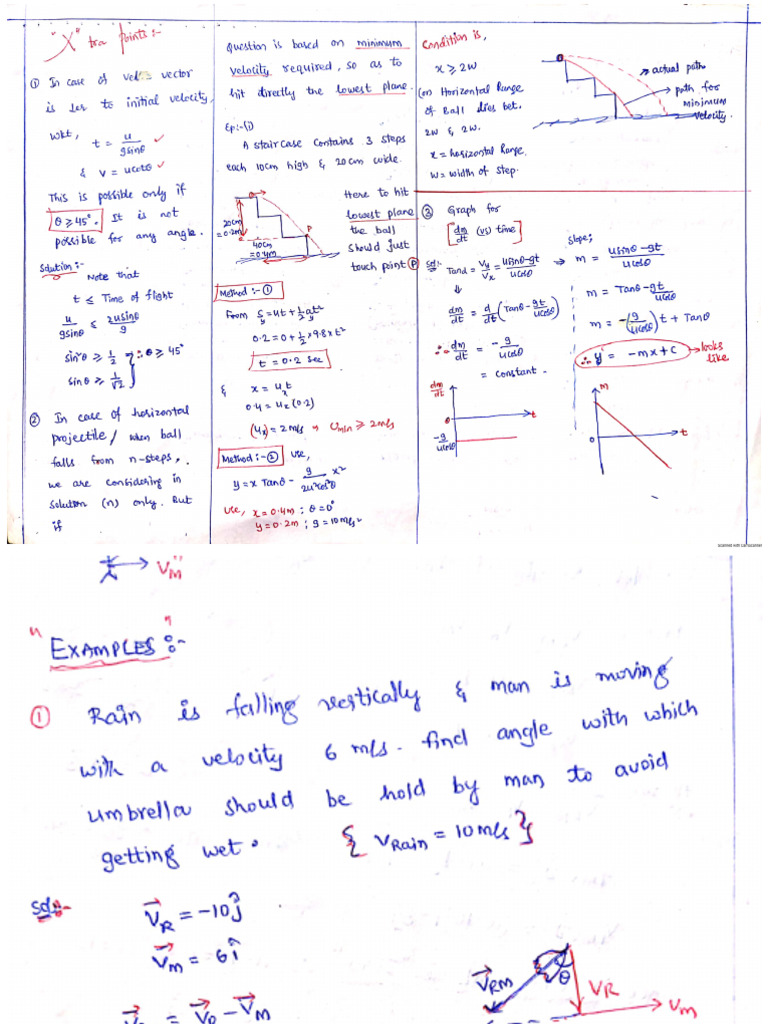 "X" tra points:-
① In case of vel. vector
is ⊥er to initial velocity,
wkt, t = u/gsinθ
& v = ucotθ
This is possible only if
θ ≥ 45°. It is not
possible for any angle.
Solution:-
Note that
t ≤ Time of flight
u/gsinθ ≤ 2usinθ/g
sin²θ ≥ 1/2
sinθ ≥ 1/√2 } ∴ θ ≥ 45°
② In case of horizontal
projectile/ when ball
falls from n-steps,
we are considering in
solution (n) only. But
if
Question is based on minimum
velocity required, so as to
hit directly the lowest plane.
Ep:-(i)
A staircase contains 3 steps
each 10cm high & 20cm wide.
20cm
=0.2m
40cm
=0.4m
P
Here to hit
lowest plane
the ball
should just
touch point P
Method:-①
From Sy = ut + 1/2 ayt²
0.2 = 0 + 1/2 × 9.8 × t²
t = 0.2 sec
& x = uxt
0.4 = ux(0.2)
(ux) = 2m/s → Umin ≥ 2m/s
Method:-② use,
y = x Tanθ - g/2u²cos²θ x²
use, x = 0.4m ; θ = 0°
y = 0.2m ; g = 10m/s²
Condition is,
x ≥ 2w
(or) Horizontal Range
of Ball dies bet.
2w & 2w.
x = horizontal Range.
w = width of step.
→ actual path
→ path for
minimum
velocity.
③ Graph for
[dm/dt (vs) time]
Sol:- Tanα = Vy/Vx = usinθ-gt/ucosθ
dm/dt = d/dt (Tanθ - gt/ucosθ)
∴ dm/dt = -g/ucosθ
= constant.
dm/dt
0
t
-g/ucosθ
slope;
⇒ m = usinθ-gt/ucosθ
m = Tanθ - gt/ucosθ
m = -(g/ucosθ)t + Tanθ
∴ y = -mx + c → looks
like
m
0
t
scanned with CamScanner
Vm"
"EXAMPLES":-
① Rain is falling vertically & man is moving
with a velocity 6 m/s. find angle with which
umbrella should be hold by man to avoid
getting wet. { VRain = 10m/s }
Soln:-
VR = -10ĵ
Vm = 6î
= VR - Vm
VRM
θ
VR
Vm